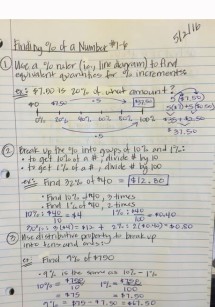 5/2/16
Finding % of a Number #1-4
① Use a % ruler (i.e., line diagram) to find
equivalent quantities for % increments
ex: $7.50 is 20% of what amount?
$0 $7.50 ·5 $37.50
0% 20% 40% 60% 80% 100%
·5
5($7.50)
$35 + $2.50
$37.50
② Break up the % into groups of 10% and 1%:
• to get 10% of a #, divide # by 10
• to get 1% of a #, divide # by 100
ex: Find 32% of $40 = $12.80
• Find 10% of $40, 3 times
• Find 1% of $40, 2 times
10% = $40/10 = $4 1% = $40/100 = $0.40
30% = 3($4) = $12 + 2% = 2($0.40) = $0.80
③ Use distributive property to break up
into tens and ones:
ex: Find 9% of $750
• 9% is the same as 10% - 1%
10% = $750/10 1% = $750/100
= $75 = $7.50
9% = $75 - $7.50 = $67.50